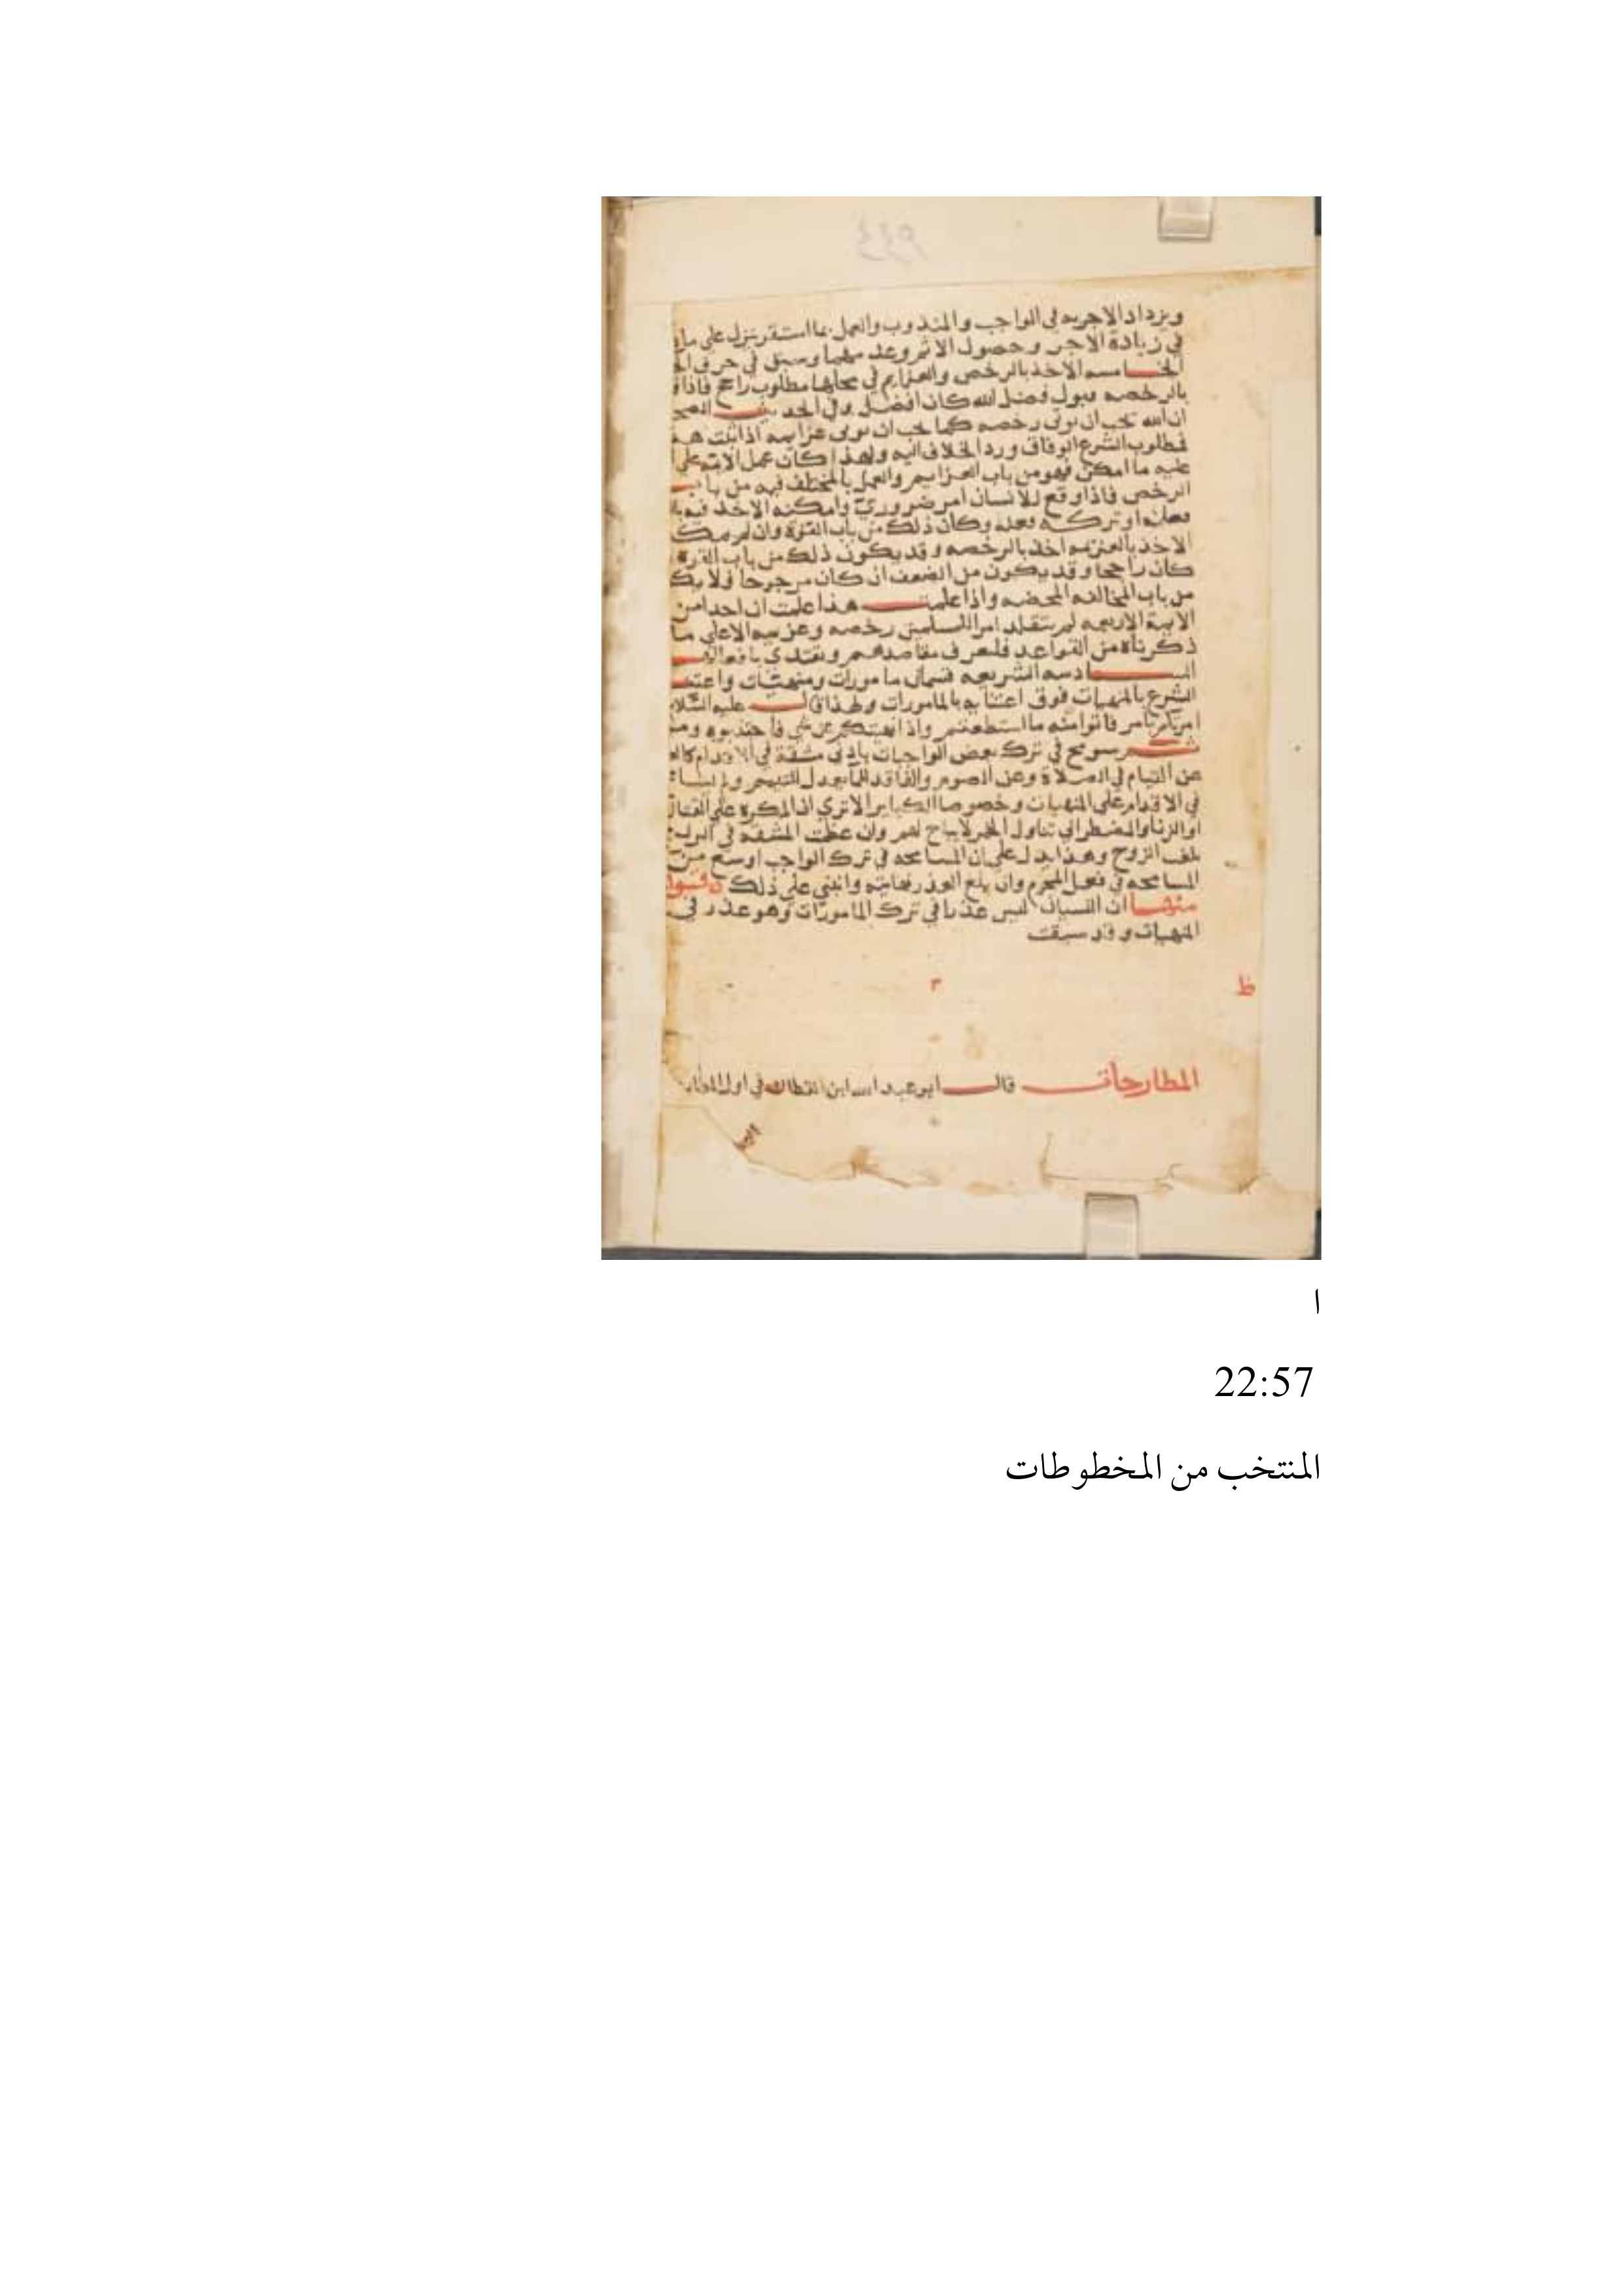 ٩٤٤
ويزداد الاجر به في الواجب والمندوب والعمل بما استقر ينزل على
في زيادة الاجر وحصول الاثم وعدمهما وسبق في حرف
الخامسه الاخذ بالرخص والعزايم في محلها مطلوب راجح فاذا
بالرخصه قبول فضل الله كان افضل وفي الحديث
ان الله يحب ان توتى رخصه كما يحب ان توتى عزايمه اذا ثبت
فمطلوب الشرع الوفاق ورد الخلاف اليه ولهذا كان عمل الايمه على
عليه ما امكن فهو من باب العزايم والعمل بالمختلف فيه من باب
الرخص فاذا وقع للانسان امر ضروري وامكنه الاخذ فيه
فعله او تركه فعله وكان ذلك من باب القوة وان لم
الاخذ بالعزيمه اخذ بالرخصه وقد يكون ذلك من باب القوة
كان راجحا وقد يكون من الضعف ان كان مرجوحا ولا
من باب المخالفه المحضه واذا علمت هذا علمت ان احدا من
الايمة الاربعه لم يتقلد امر المسلمين رخصه وعزيمه الا على ما
ذكرناه من القواعد فلتعرف مقاصدهم ونقتدي بافعالهم
السادسه الشريعه قسمان مامورات ومنهيات
الشرع بالمنهيات فوق اعتنايه بالمامورات ولهذا قال عليه السلام
امرتكم بامر فاتوا منه ما استطعتم واذا نهيتكم عن شي فاجتنبوه ومن
ثم سومح في ترك بعض الواجبات بادنى مشقة في الاقدام
عن القيام في الصلاة وعن الصوم والفاقد للما يعدل للتيمم
في الاقدام على المنهيات وخصوصا الكباير الا ترى ان المكره على القتال
او الزنا والمضطر الى تناول الخمر لا يباح لهم وان عظمت المشقه في
تلف الروح وهذا يدل على ان المسامحه في ترك الواجب اوسع من
المسامحه في فعل المحرم وان بلغ العذر نهايته وانبنى على ذلك
منها ان النسيان ليس عذرا في ترك المامورات وهو عذر في
المنهيات وقد سبقت
ظ
المطارحات قال ابو عبد الله ابن القطان في اول
ا
22:57
المنتخب من المخطوطات